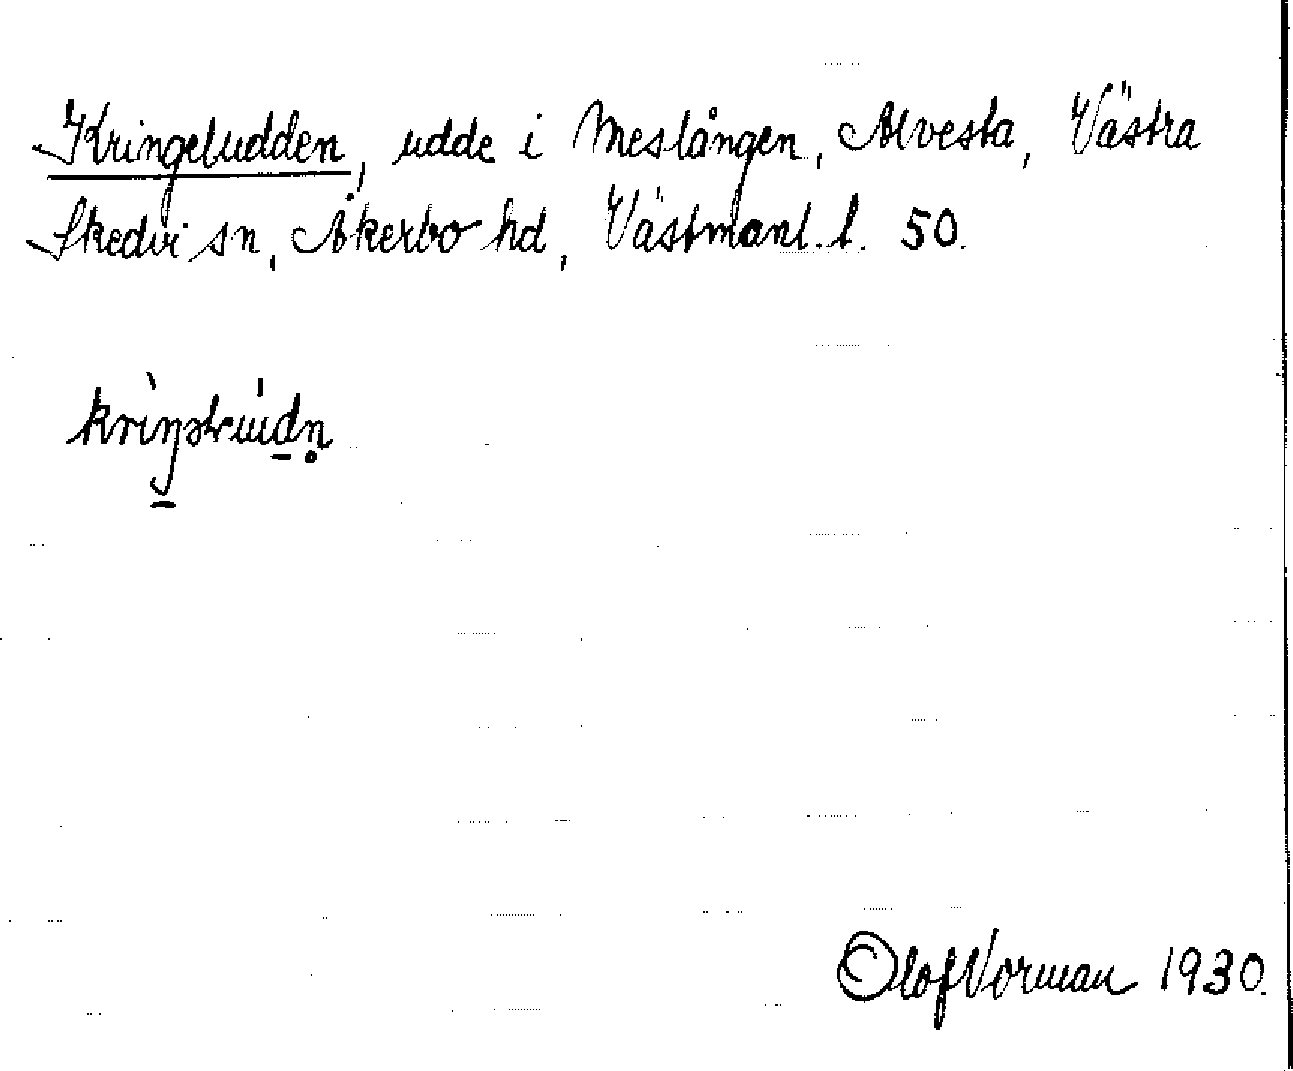 Kringeludden, udde i Meslången, Alvesta, Västra
Skedvi sn, Åkerbo hd, Västmanl. l. 50.
Olof Vorman 1930.